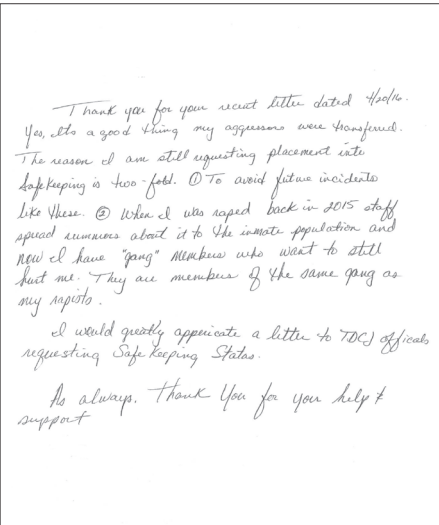 Thank you for your recent letter dated 4/20/16.
Yes, Its a good thing my aggressors were transferred.
The reason I am still requesting placement into
Safekeeping is two-fold. ① To avoid future incidents
like these. ② When I was raped back in 2015 staff
spread rummors about it to the inmate population and
now I have "gang" members who want to still
hurt me. They are members of the same gang as
my rapists.
I would greatly appericate a letter to TDCJ officals
requesting Safe Keeping Status.
As always. Thank You for your help &
support